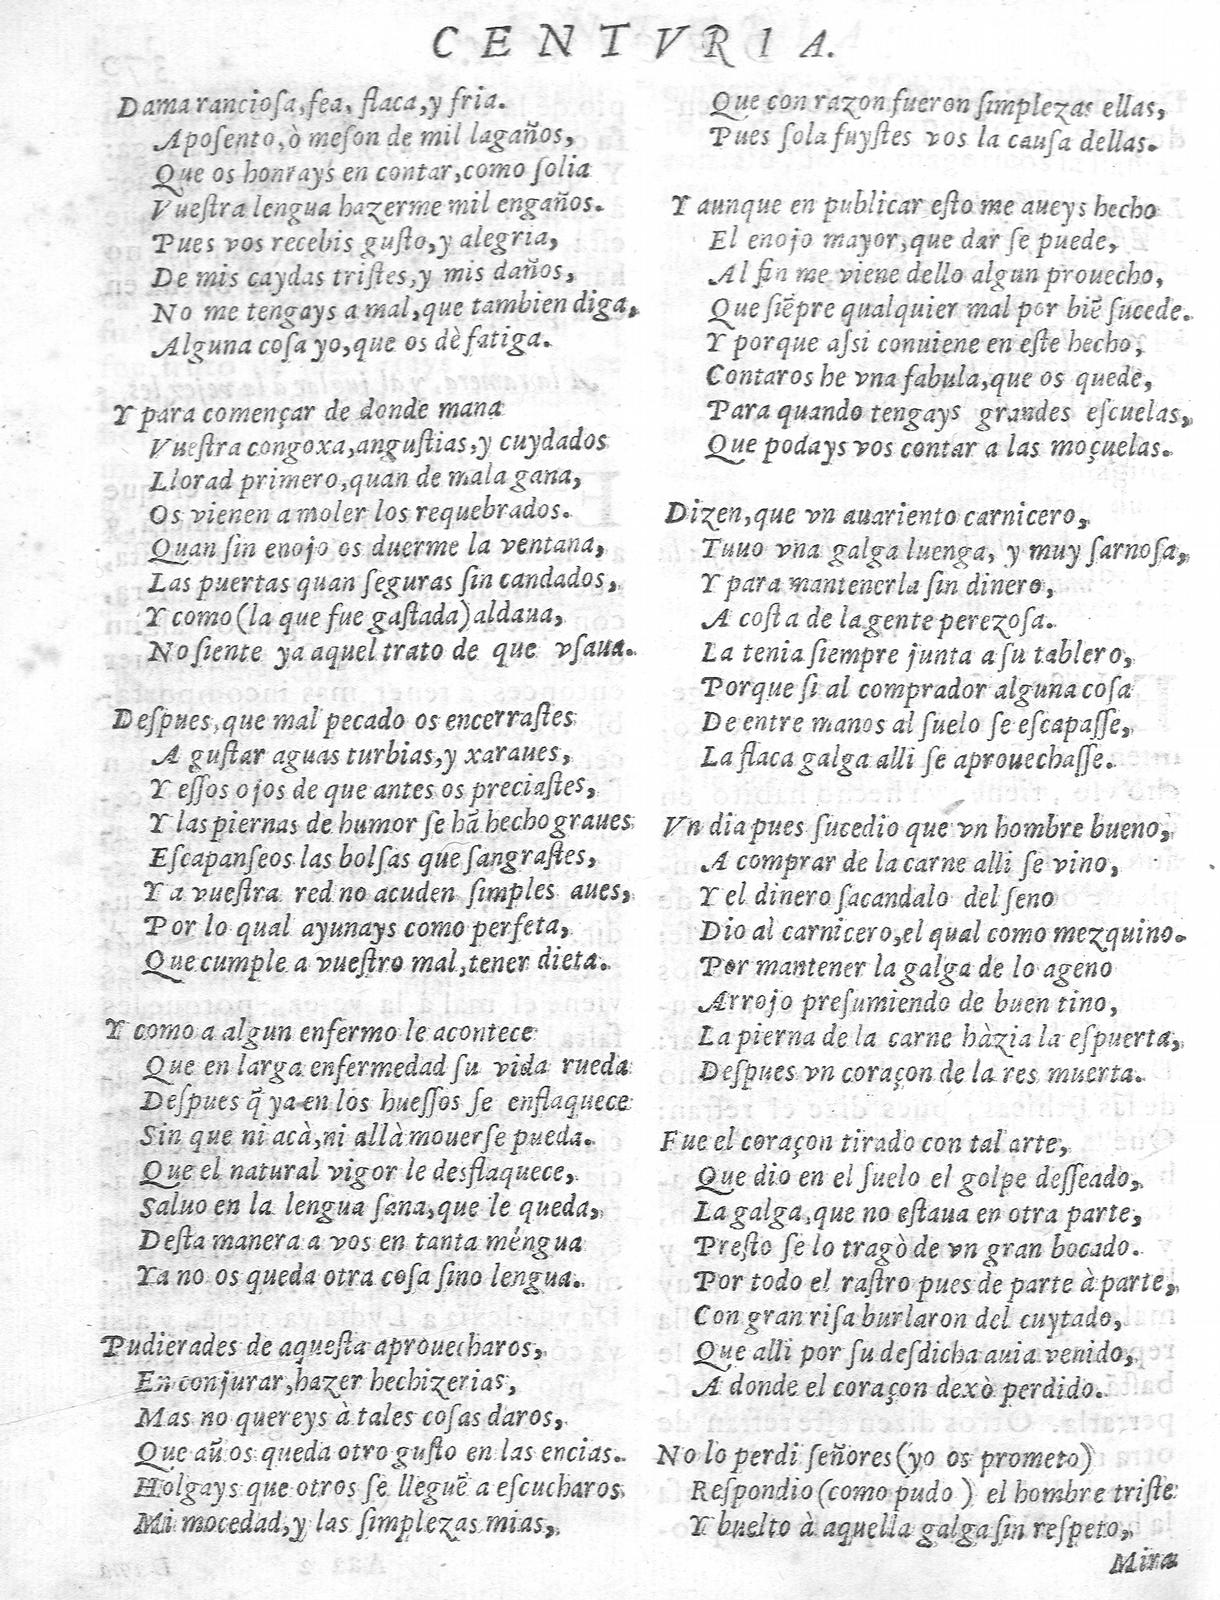 CENTVRIA.
Dama ranciosa, fea, flaca, y fria.
Aposento, ò meson de mil lagaños,
Que os honrays en contar, como solia
Vuestra lengua hazerme mil engaños.
Pues vos recebis gusto, y alegria,
De mis caydas tristes, y mis daños,
No me tengays a mal, que tambien diga,
Alguna cosa yo, que os dè fatiga.
Y para començar de donde mana
Vuestra congoxa, angustias, y cuydados
Llorad primero, quan de mala gana,
Os vienen a moler los requebrados.
Quan sin enojo os duerme la ventana,
Las puertas quan seguras sin candados,
Y como (la que fue gastada) aldaua,
No siente ya aquel trato de que vsaua.
Despues, que mal pecado os encerrastes
A gustar aguas turbias, y xaraues,
Y essos ojos de que antes os preciastes,
Y las piernas de humor se hã hecho graues
Escapanseos las bolsas que sangrastes,
Y a vuestra red no acuden simples aues,
Por lo qual ayunays como perfeta,
Que cumple a vuestro mal, tener dieta.
Y como a algun enfermo le acontece
Que en larga enfermedad su vida rueda
Despues q̃ ya en los huessos se enflaquece
Sin que ni acà, ni allà mouerse pueda.
Que el natural vigor le desflaquece,
Saluo en la lengua sana, que le queda,
Desta manera a vos en tanta méngua
Ya no os queda otra cosa sino lengua.
Pudierades de aquesta aprouecharos,
En conjurar, hazer hechizerias,
Mas no quereys à tales cosas daros,
Que aũ os queda otro gusto en las encias.
Holgays que otros se lleguẽ a escucharos
Mi mocedad, y las simplezas mias,
Que con razon fueron simplezas ellas,
Pues sola fuystes vos la causa dellas.
Y aunque en publicar esto me aueys hecho
El enojo mayor, que dar se puede,
Al fin me viene dello algun prouecho,
Que siẽpre qualquier mal por biẽ sucede.
Y porque assi conuiene en este hecho,
Contaros he vna fabula, que os quede,
Para quando tengays grandes escuelas,
Que podays vos contar a las moçuelas.
Dizen, que vn auariento carnicero,
Tuuo vna galga luenga, y muy sarnosa,
Y para mantenerla sin dinero,
A costa de la gente perezosa.
La tenia siempre junta a su tablero,
Porque si al comprador alguna cosa
De entre manos al suelo se escapasse,
La flaca galga alli se aprouechasse.
Vn dia pues sucedio que vn hombre bueno,
A comprar de la carne alli se vino,
Y el dinero sacandalo del seno
Dio al carnicero, el qual como mezquino.
Por mantener la galga de lo ageno
Arrojo presumiendo de buen tino,
La pierna de la carne hàzia la espuerta,
Despues vn coraçon de la res muerta.
Fue el coraçon tirado con tal arte,
Que dio en el suelo el golpe desseado,
La galga, que no estaua en otra parte,
Presto se lo tragò de vn gran bocado.
Por todo el rastro pues de parte à parte,
Con gran risa burlaron del cuytado,
Que alli por su desdicha auia venido,
A donde el coraçon dexò perdido.
No lo perdi señores (yo os prometo)
Respondio (como pudo) el hombre triste
Y buelto à aquella galga sin respeto,
Mira